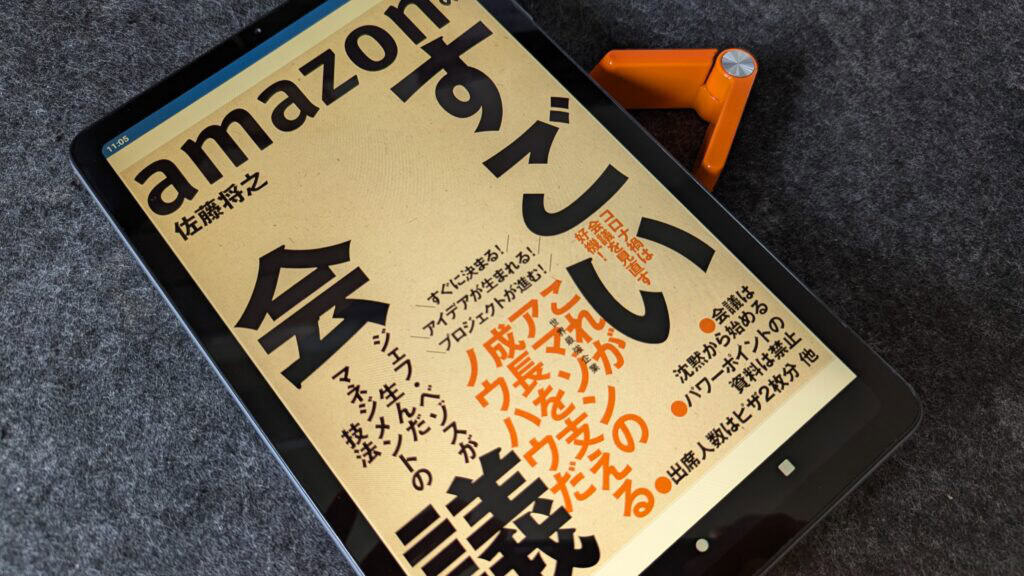 11:05
amazonの
すごい
会
議
佐藤将之
すぐに決まる!
アイデアが生まれる!
プロジェクトが進む!
コロナ禍は
会議を見直す
好機!
ジェフ・ベゾスが
生んだ
マネジメントの
技法
これが
世界最強企業
アマゾンの
成長を支える
ノウハウだ
●会議は
沈黙から始める
●パワーポイントの
資料は禁止
●出席人数はピザ2枚分 他